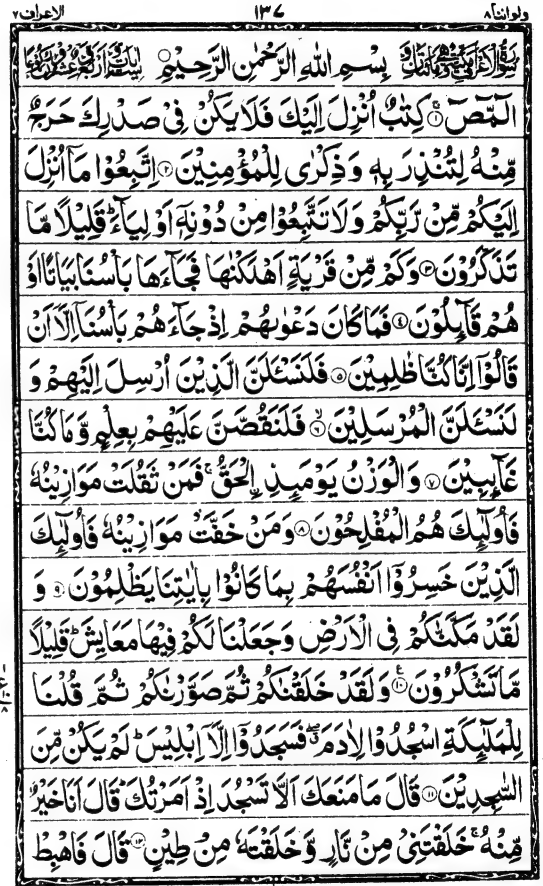 ولواننا ٨ ١٣٧ الاعراف ٧
بِسْمِ اللهِ الرَّحْمٰنِ الرَّحِيْمِ
الٓمّٓصٓ ۚ﴿١﴾ كِتٰبٌ اُنْزِلَ اِلَيْكَ فَلَا يَكُنْ فِىْ صَدْرِكَ حَرَجٌ
مِّنْهُ لِتُنْذِرَ بِهٖ وَ ذِكْرٰى لِلْمُؤْمِنِيْنَ ﴿٢﴾ اِتَّبِعُوْا مَاۤ اُنْزِلَ
اِلَيْكُمْ مِّنْ رَّبِّكُمْ وَلَا تَتَّبِعُوْا مِنْ دُوْنِهٖۤ اَوْلِيَآءَ ؕ قَلِيْلًا مَّا
تَذَكَّرُوْنَ ﴿٣﴾ وَكَمْ مِّنْ قَرْيَةٍ اَهْلَكْنٰهَا فَجَآءَهَا بَاْسُنَا بَيَاتًا اَوْ
هُمْ قَآئِلُوْنَ ﴿٤﴾ فَمَا كَانَ دَعْوٰىهُمْ اِذْ جَآءَهُمْ بَاْسُنَاۤ اِلَّاۤ اَنْ
قَالُوْۤا اِنَّا كُنَّا ظٰلِمِيْنَ ﴿٥﴾ فَلَنَسْـَٔلَنَّ الَّذِيْنَ اُرْسِلَ اِلَيْهِمْ وَ
لَنَسْـَٔلَنَّ الْمُرْسَلِيْنَ ۙ﴿٦﴾ فَلَنَقُصَّنَّ عَلَيْهِمْ بِعِلْمٍ وَّ مَا كُنَّا
غَآئِبِيْنَ ﴿٧﴾ وَ الْوَزْنُ يَوْمَئِذِ ۨالْحَقُّ ۚ فَمَنْ ثَقُلَتْ مَوَازِيْنُهٗ
فَاُولٰٓئِكَ هُمُ الْمُفْلِحُوْنَ ﴿٨﴾ وَمَنْ خَفَّتْ مَوَازِيْنُهٗ فَاُولٰٓئِكَ
الَّذِيْنَ خَسِرُوْۤا اَنْفُسَهُمْ بِمَا كَانُوْا بِاٰيٰتِنَا يَظْلِمُوْنَ ﴿٩﴾ وَ
لَقَدْ مَكَّنّٰكُمْ فِى الْاَرْضِ وَ جَعَلْنَا لَكُمْ فِيْهَا مَعَايِشَ ؕ قَلِيْلًا
مَّا تَشْكُرُوْنَ ﴿١٠﴾ وَ لَقَدْ خَلَقْنٰكُمْ ثُمَّ صَوَّرْنٰكُمْ ثُمَّ قُلْنَا
لِلْمَلٰٓئِكَةِ اسْجُدُوْا لِاٰدَمَ ۖ فَسَجَدُوْۤا اِلَّاۤ اِبْلِيْسَ ؕ لَمْ يَكُنْ مِّنَ
السّٰجِدِيْنَ ﴿١١﴾ قَالَ مَا مَنَعَكَ اَلَّا تَسْجُدَ اِذْ اَمَرْتُكَ ؕ قَالَ اَنَا خَيْرٌ
مِّنْهُ ۚ خَلَقْتَنِىْ مِنْ نَّارٍ وَّ خَلَقْتَهٗ مِنْ طِيْنٍ ﴿١٢﴾ قَالَ فَاهْبِطْ